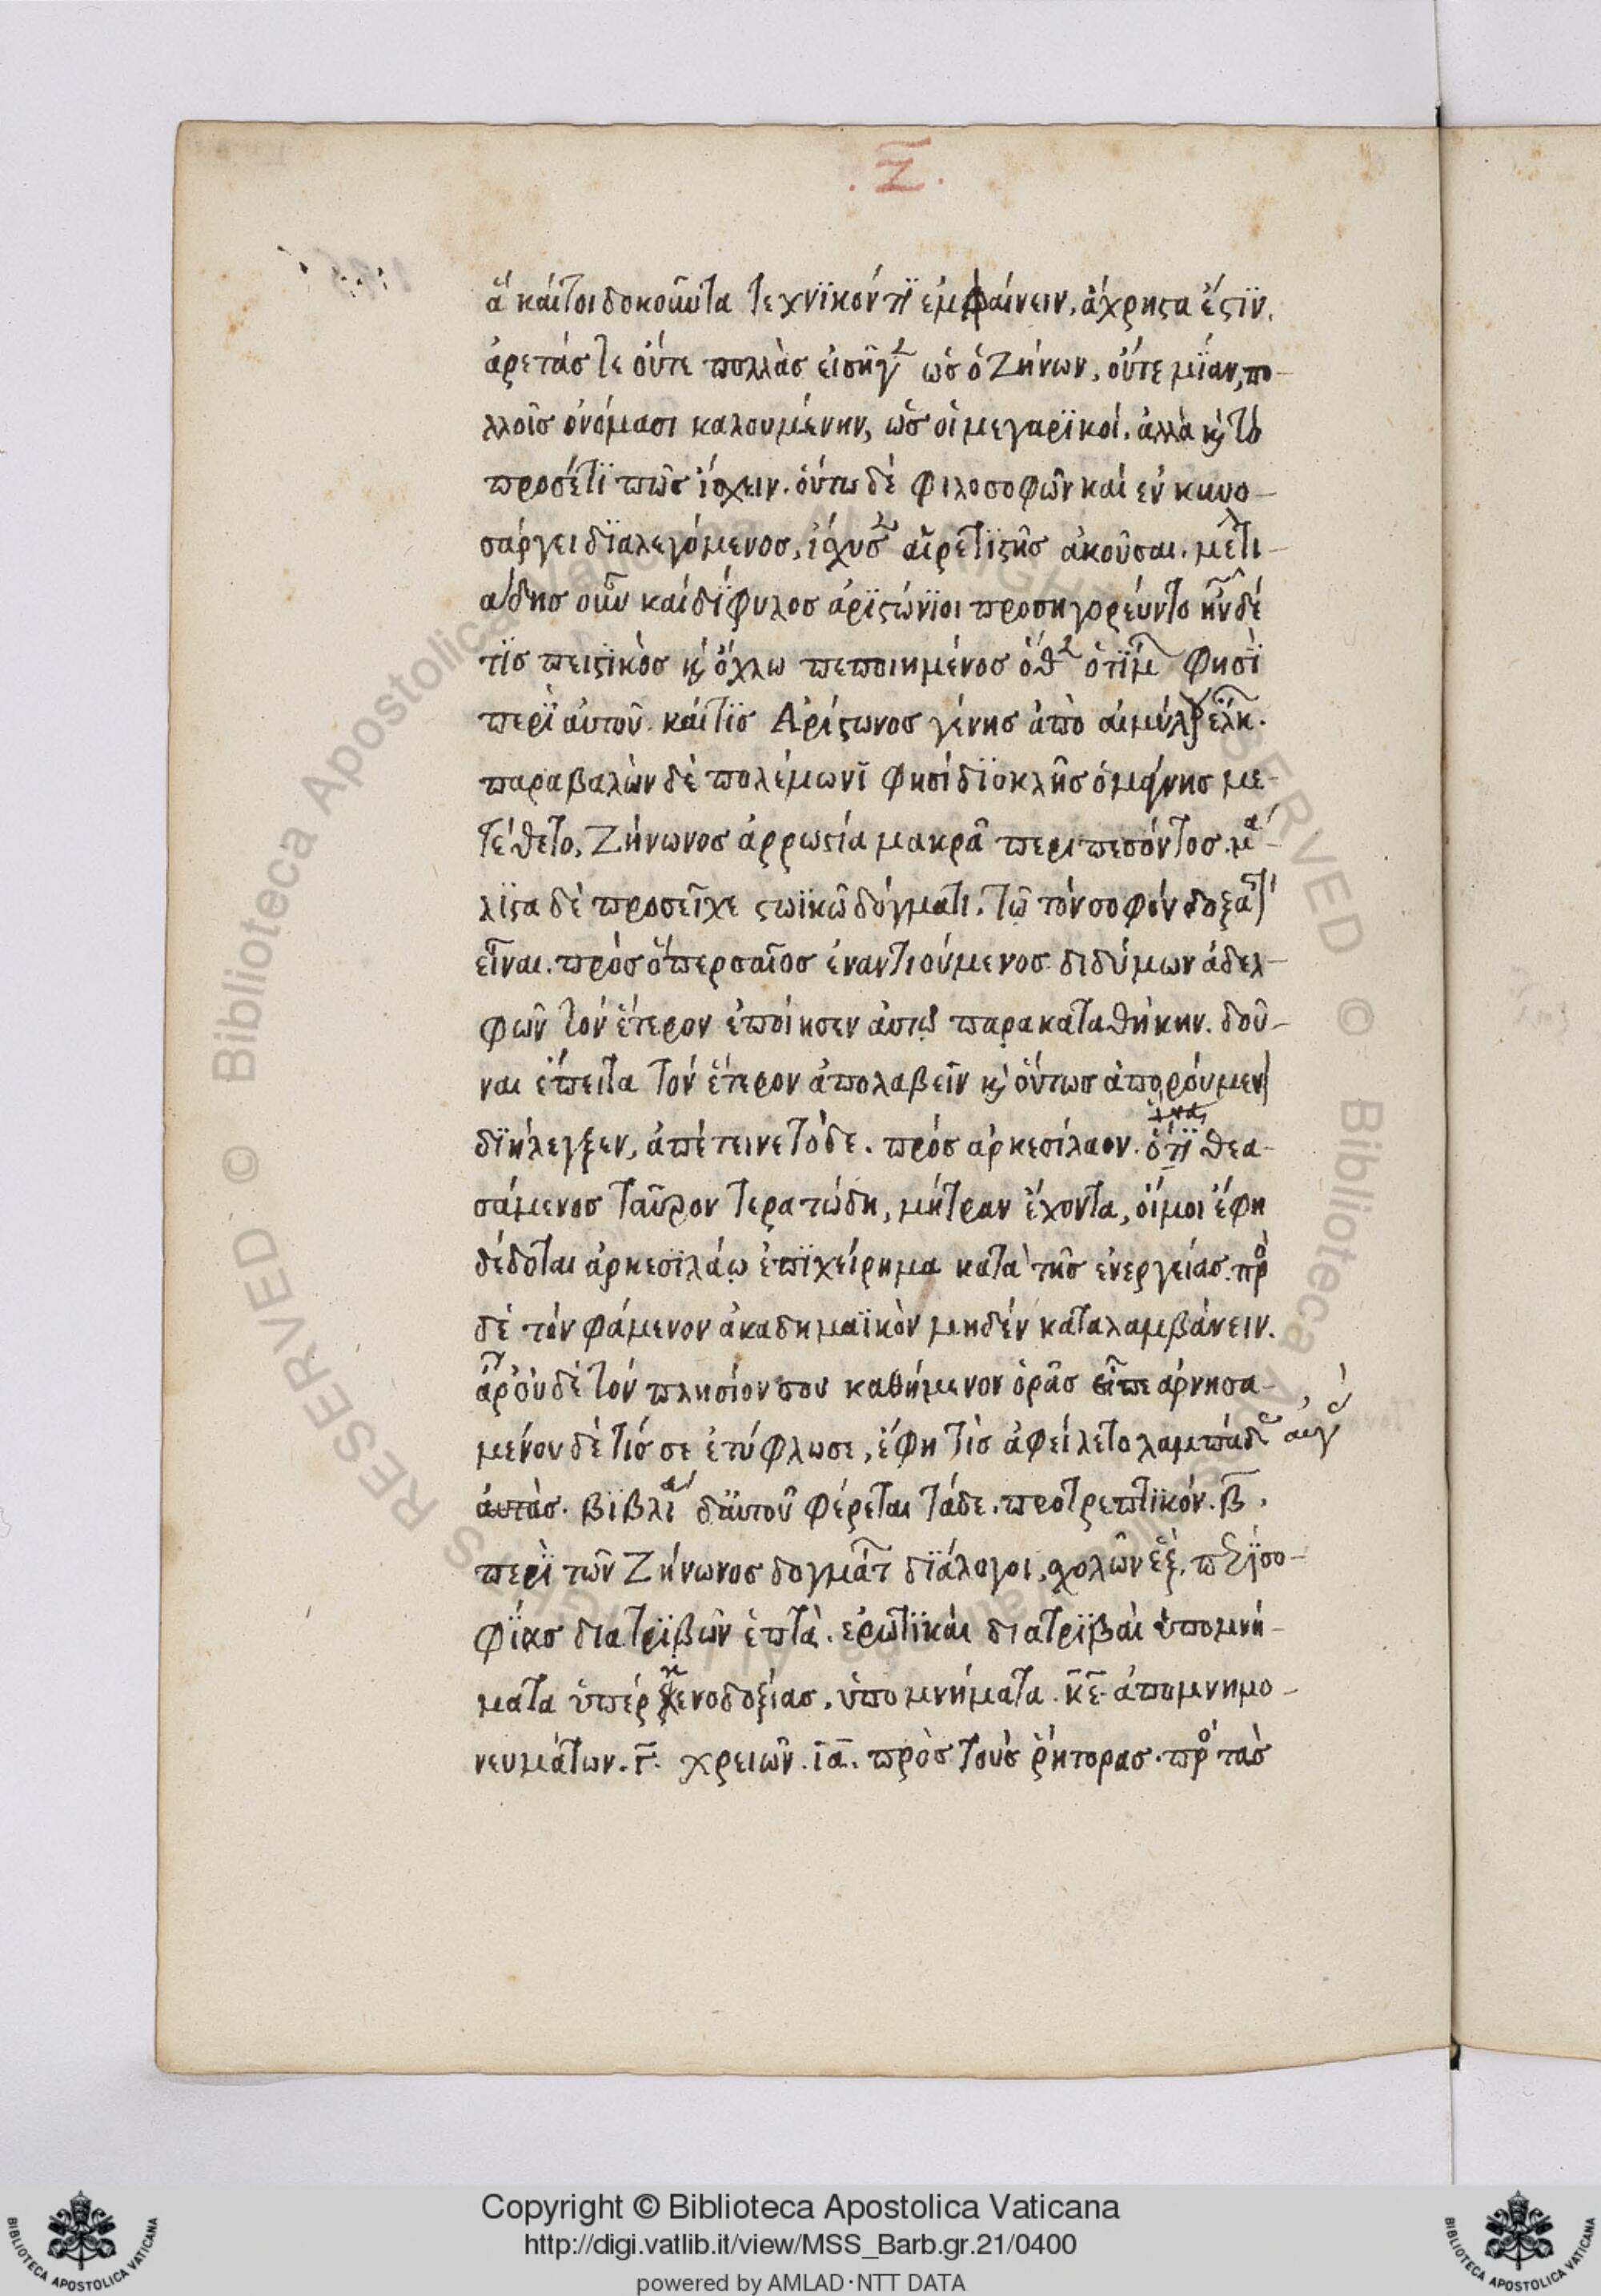 .Ζ.
ἅ καίτοι δοκοῦντα τεχνϊκόν τϊ ἐμφαίνειν, ἄχρηστα ἐστϊν.
ἀρετάσ τε οὔτε πολλὰσ εἰσῆγ ὡσ ὁ Ζήνων, οὔτε μΐαν, πο-
λλοῖσ ὀνόμασι καλουμένην, ὡσ οἱ μεγαρϊκοί. ἀλλὰ κ τὸ
προσέτϊ πῶσ ἴσχειν. οὕτω δὲ φιλοσοφῶν καὶ ἐν κυνο-
σάργει δϊαλεγόμενοσ, ἴσχυσ αἱρετϊστῆσ ἀκοῦσαι. μετι-
άδησ οὖν καὶ δΐφυλοσ ἀρϊστώνϊοι προσηγορεύντο ἦν δέ
τϊσ πειστϊκὸσ κ ὄχλω πεποιημένοσ ὅθ ὁ τϊμ φησϊ
περϊ αὐτοῦ. καί τϊσ Ἀρίστωνοσ γέννησ ἀπὸ αἱμύλ εἷλκ.
παραβαλὼν δὲ πολέμωνϊ φησὶ δϊοκλῆσ ὁ μάγνησ με-
τέθετο, Ζήνωνοσ ἀρρωστία μακρᾶ περιπεσόντοσ. μα-
λϊστα δὲ προσεῖχε στωϊκῶ δόγματι. τῶ τὸν σοφὸν δοξαστ
εἶναι. πρὸσ ὃ περσαῖοσ ἐναντιούμενοσ διδύμων ἀδελ-
φῶν τὸν ἕτερον ἐποίησεν ἀυτῶ παρακαταθήκην. δοῦ-
ναι ἔπειτα τὸν ἕτερον ἀπολαβεῖν κ οὕτωσ ἀπορούμεν
δϊήλεγξεν, ἀπέτεινε τὸ δε. πρὸσ ἀρκεσίλαον. ὅτϊ θεα-
σάμενοσ ταῦρον τερατώδη, μήτραν ἔχοντα, οἴμοι ἔφη
δέδοται ἀρκεσϊλάω ἐπϊχείρημα κατὰ τῆσ ἐνεργείασ. πρ
δὲ τὸν φάμενον ἀκαδημαϊκὸν μηδὲν καταλαμβάνειν.
ἆρ οὐδὲ τὸν πλησίον σου καθήμενον ὁρᾶσ εἶπε ἀρνησα-
μένου δὲ τίσ σε ἐτύφλωσε, ἔφη τὶσ ἀφείλετο λαμπάδ αυγ
ἀυτὰσ. βϊβλία δ ἀυτοῦ φέρεται τάδε. προτρεπτϊκόν. β.
περϊ τῶν Ζήνωνοσ δογμάτ δϊάλογοι, σχολῶν ἕξ. π σο-
φΐασ διατρϊβῶν ἑπτὰ. ἐρωτϊκαὶ διατρϊβαὶ ὑπομνή-
ματα ὑπὲρ κενοδοξίασ, ὑπομνήματα. κε. ἀπομνημο-
νευμάτων. γ. χρειῶν. ια. πρὸσ τοὺσ ῥήτορασ. πρ τὰσ
Copyright © Biblioteca Apostolica Vaticana
http://digi.vatlib.it/view/MSS_Barb.gr.21/0400
powered by AMLAD·NTT DATA